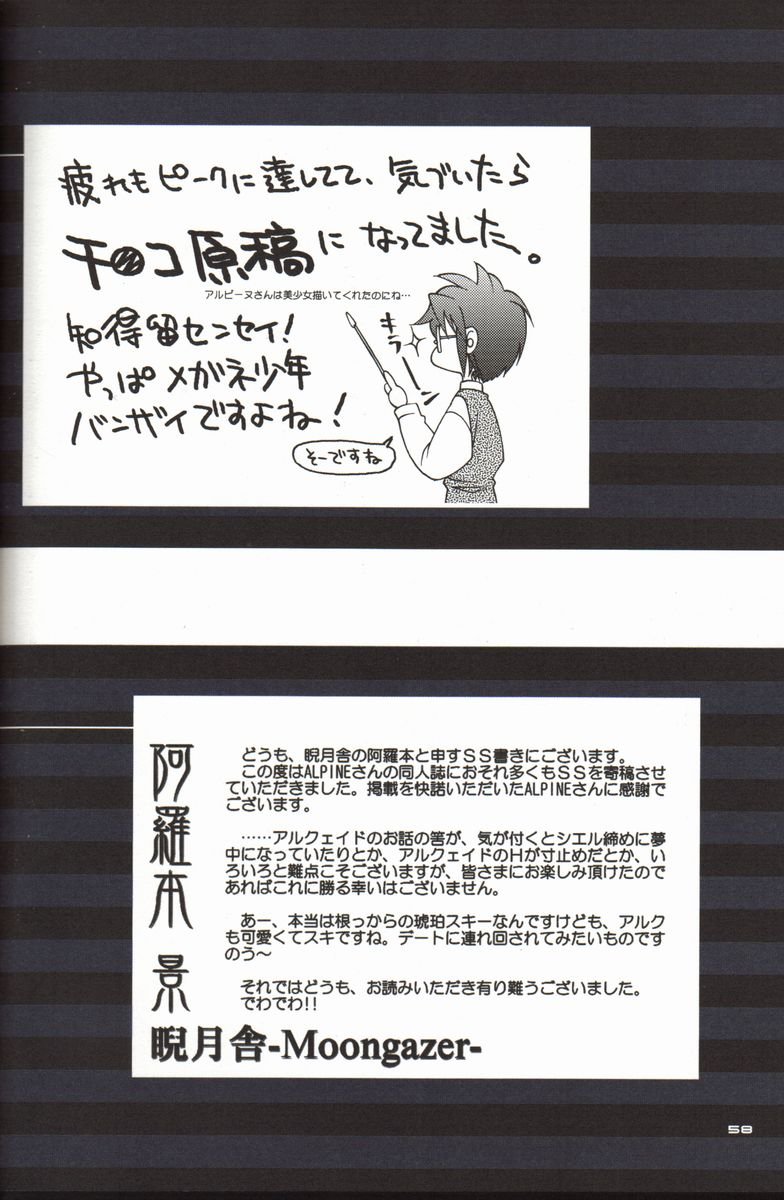 疲れもピークに達してて、気づいたら
チ○コ原稿になってました。
アルピーヌさんは美少女描いてくれたのにね…
知得留センセイ!
やっぱメガネ少年
バンザイですよね!
キラーン
そーですね
阿羅本 景
どうも、睨月舎の阿羅本と申すSS書きにございます。
この度はALPINEさんの同人誌におそれ多くもSSを寄稿させ
ていただきました。掲載を快諾いただいたALPINEさんに感謝で
ございます。
……アルクェイドのお話の筈が、気が付くとシエル締めに夢
中になっていたりとか、アルクェイドのHが寸止めだとか、い
ろいろと難点こそございますが、皆さまにお楽しみ頂けたので
あればこれに勝る幸いはございません。
あー、本当は根っからの琥珀スキーなんですけども、アルク
も可愛くてスキですね。デートに連れ回されてみたいものです
のう～
それではどうも、お読みいただき有り難うございました。
でわでわ!!
睨月舎-Moongazer-
58